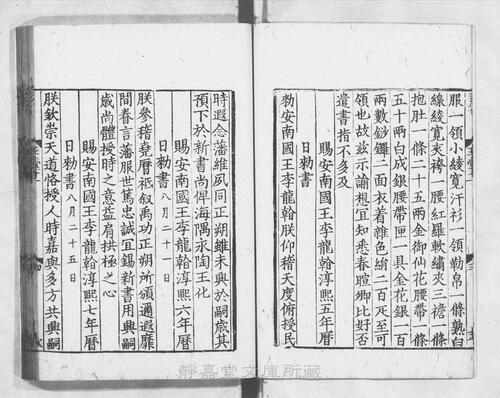 服一領小綾寬汗衫一領勒帛一條熟白
線綾寬夾袴一腰紅羅軟繡夾三襜一條
抱肚一條二十五兩金御仙花腰帶一條
五十兩白成銀腰帶匣一具金花銀一百
兩數鈔鑼二面衣着雜色綃二百疋至可
領也故茲示諭想宜知悉春暄卿比好否
遣書指不多及
日勑書
賜安南國王李龍翰淳熙五年曆
勑安南國王李龍翰朕仰稽天度俯授民
時遐念藩維夙同正朔雖未興於嗣歲其
預下於新書尚俾海隅永陶王化
八月二十一日
賜安南國王李龍翰淳熙六年曆
朕參稽堯曆祗叙禹功正朔所頒遐邇靡
間眷言藩服世篤忠誠宜錫新書用興嗣
歲尚體授時之意益肩拱極之心
賜安南國王李龍翰淳熙七年曆
日勑書 八月二十五日
朕欽崇天道恪授人時嘉與多方共興嗣
靜嘉堂文庫所藏